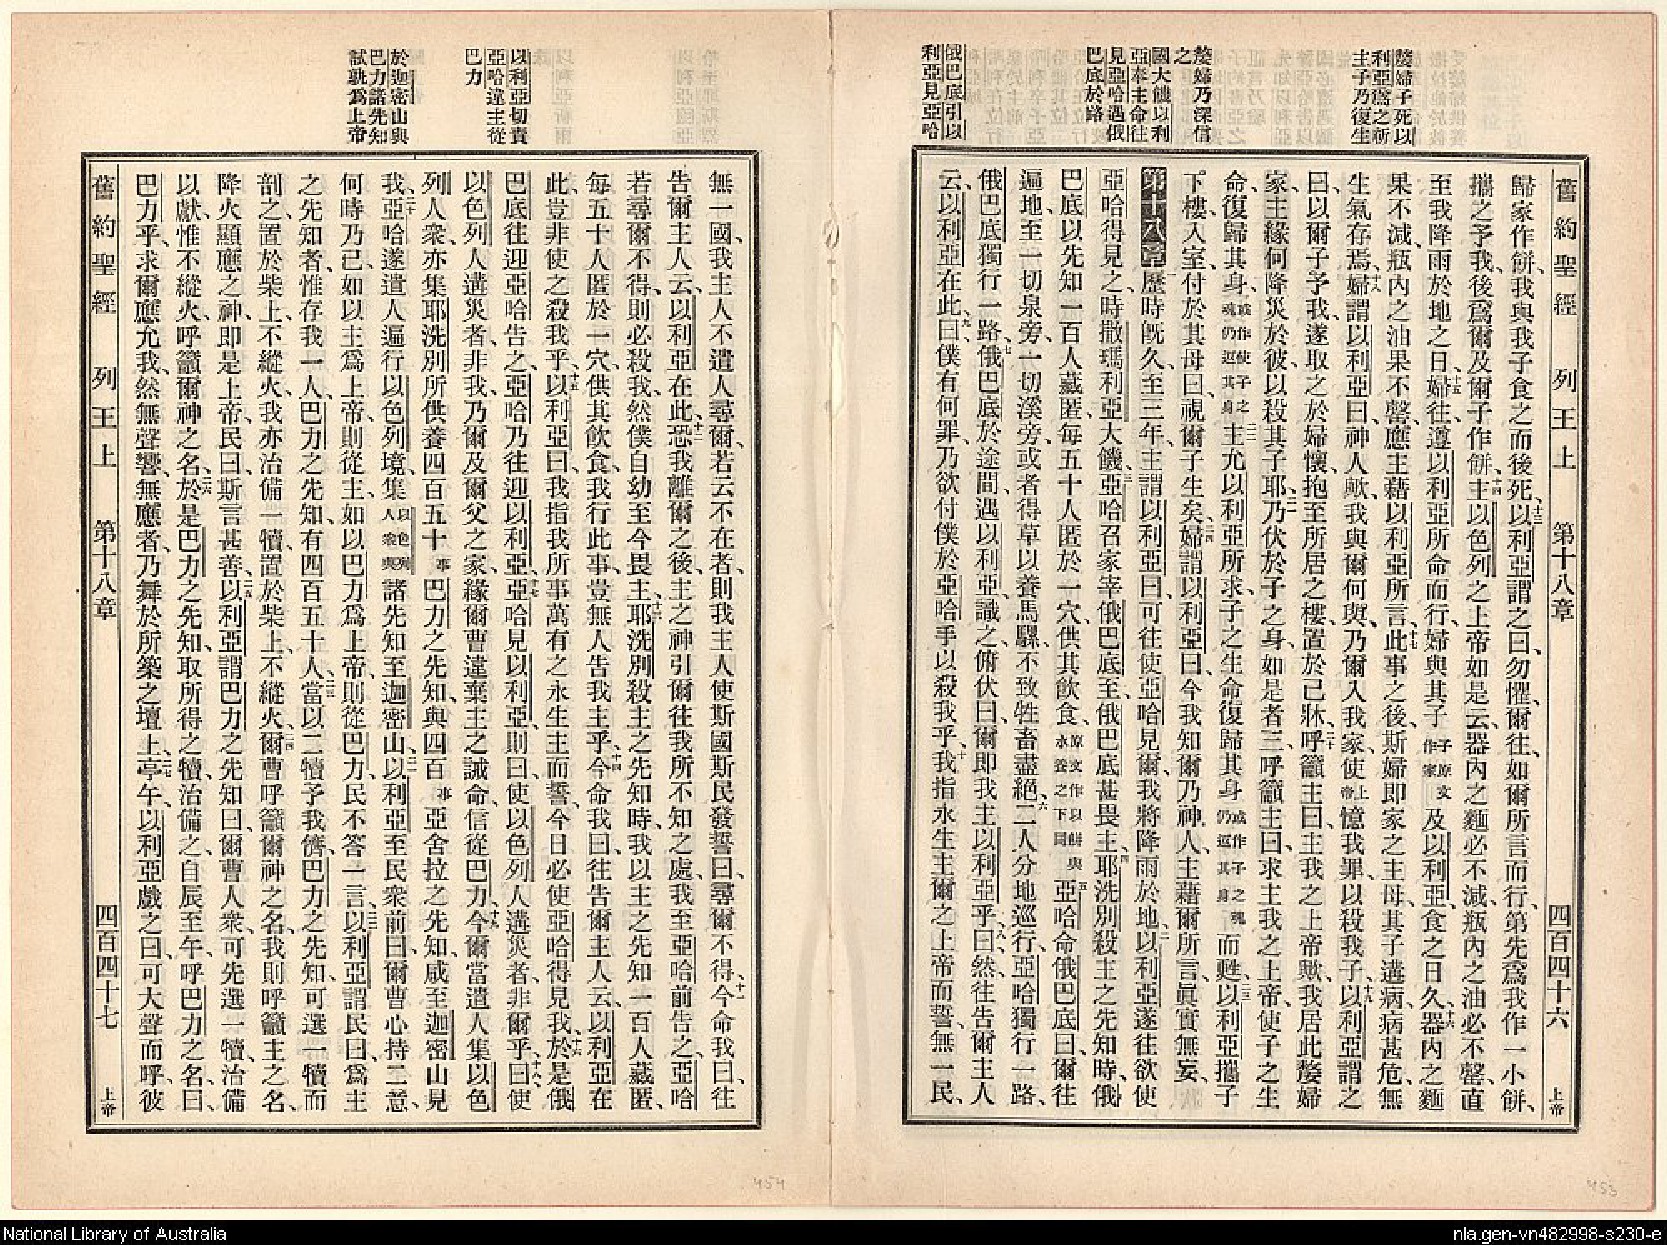 嫠婦子死以
利亞爲之祈
主子乃復生
嫠婦乃深信
之
國大饑以利
亞奉主命往
見亞哈遇俄
巴底於路
俄巴底引以
利亞見亞哈
舊約聖經 列王上 第十八章 四百四十六 上帝
歸家作餅、我與我子食之而後死、十三以利亞謂之曰、勿懼、爾往、如爾所言而行、第先爲我作一小餅、
攜之予我、後爲爾及爾子作餅、十四主以色列之上帝如是云、器內之麵必不減、瓶內之油必不罄、直
至我降雨於地之日、十五婦往、遵以利亞所命而行、婦與其子子原文作家及以利亞、食之日久、十六器內之麵
果不減、瓶內之油果不罄、應主藉以利亞所言、十七此事之後、斯婦即家之主母、其子遘病、病甚危、無
生氣存焉、十八婦謂以利亞曰、神人歟、我與爾何與、乃爾入我家、使上帝憶我罪、以殺我子、十九以利亞謂之
曰、以爾子予我、遂取之於婦懷、抱至所居之樓、置於己牀、二十呼籲主曰、主我之上帝歟、我居此嫠婦
家、主緣何降災於彼、以殺其子耶、二一乃伏於子之身、如是者三、呼籲主曰、求主我之上帝、使子之生
命復歸其身、或作使子之魂仍返其身二二主允以利亞所求、子之生命復歸其身或作子之魂仍返其身而甦、二三以利亞攜子
下樓、入室、付於其母曰、視爾子生矣、二四婦謂以利亞曰、今我知爾乃神人、主藉爾所言、眞實無妄、
第十八章 一歷時旣久、至三年、主謂以利亞曰、可往使亞哈見爾、我將降雨於地、二以利亞遂往、欲使
亞哈得見之、時撒瑪利亞大饑、三亞哈召家宰俄巴底至、俄巴底甚畏主、四耶洗別殺主之先知時、俄
巴底以先知一百人藏匿、每五十人匿於一穴、供其飲食、原文作以餅與水養之下同五亞哈命俄巴底曰、爾往
遍地、至一切泉旁、一切溪旁、或者得草以養馬騾、不致牲畜盡絕、六二人分地巡行、亞哈獨行一路、
俄巴底獨行一路、七俄巴底於途間、遇以利亞、識之、俯伏曰、爾即我主以利亞乎、八曰、然、往告爾主人
云、以利亞在此、九曰、僕有何罪、乃欲付僕於亞哈手以殺我乎、十我指永生主爾之上帝而誓、無一民、
以利亞切責
亞哈違主從
巴力
於迦密山與
巴力諸先知
試孰爲上帝
無一國、我主人不遣人尋爾、若云不在者、則我主人使斯國斯民發誓曰、尋爾不得、十一今命我曰、往
告爾主人云、以利亞在此、十二恐我離爾之後、主之神引爾往我所不知之處、我至亞哈前告之、亞哈
若尋爾不得、則必殺我、然僕自幼至今畏主、十三耶洗別殺主之先知時、我以主之先知一百人藏匿、
每五十人匿於一穴、供其飲食、我行此事、豈無人告我主乎、十四今命我曰、往告爾主人云、以利亞在
此、豈非使之殺我乎、十五以利亞曰、我指我所事萬有之永生主而誓、今日必使亞哈得見我、十六於是俄
巴底往迎亞哈告之、亞哈乃往迎以利亞、十七亞哈見以利亞、則曰、使以色列人遘災者、非爾乎、十八曰、使
以色列人遘災者、非我、乃爾及爾父之家、緣爾曹違棄主之誡命、信從巴力、十九今爾當遣人集以色
列人衆、亦集耶洗別所供養四百五十事巴力之先知、與四百事亞舍拉之先知、咸至迦密山見
我、二十亞哈遂遣人遍行以色列境、集以色列人衆與諸先知至迦密山、二一以利亞至民衆前曰、爾曹心持二意、
何時乃已、如以主爲上帝、則從主、如以巴力爲上帝、則從巴力、民不答一言、二二以利亞謂民曰、爲主
之先知者、惟存我一人、巴力之先知、有四百五十人、二三當以二犢予我儕、巴力之先知、可選一犢而
剖之、置於柴上、不縱火、我亦治備一犢、置於柴上、不縱火、二四爾曹呼籲爾神之名、我則呼籲主之名、
降火顯應之神、即是上帝、民曰、斯言甚善、二五以利亞謂巴力之先知曰、爾曹人衆、可先選一犢、治備
以獻、惟不縱火、呼籲爾神之名、二六於是巴力之先知、取所得之犢、治備之、自辰至午、呼巴力之名曰、
巴力乎、求爾應允我、然無聲響、無應者、乃舞於所築之壇上、二七亭午、以利亞戲之曰、可大聲而呼、彼
舊約聖經 列王上 第十八章 四百四十七 上帝
454
453
National Library of Australia
nla.gen-vn482998-s230-e